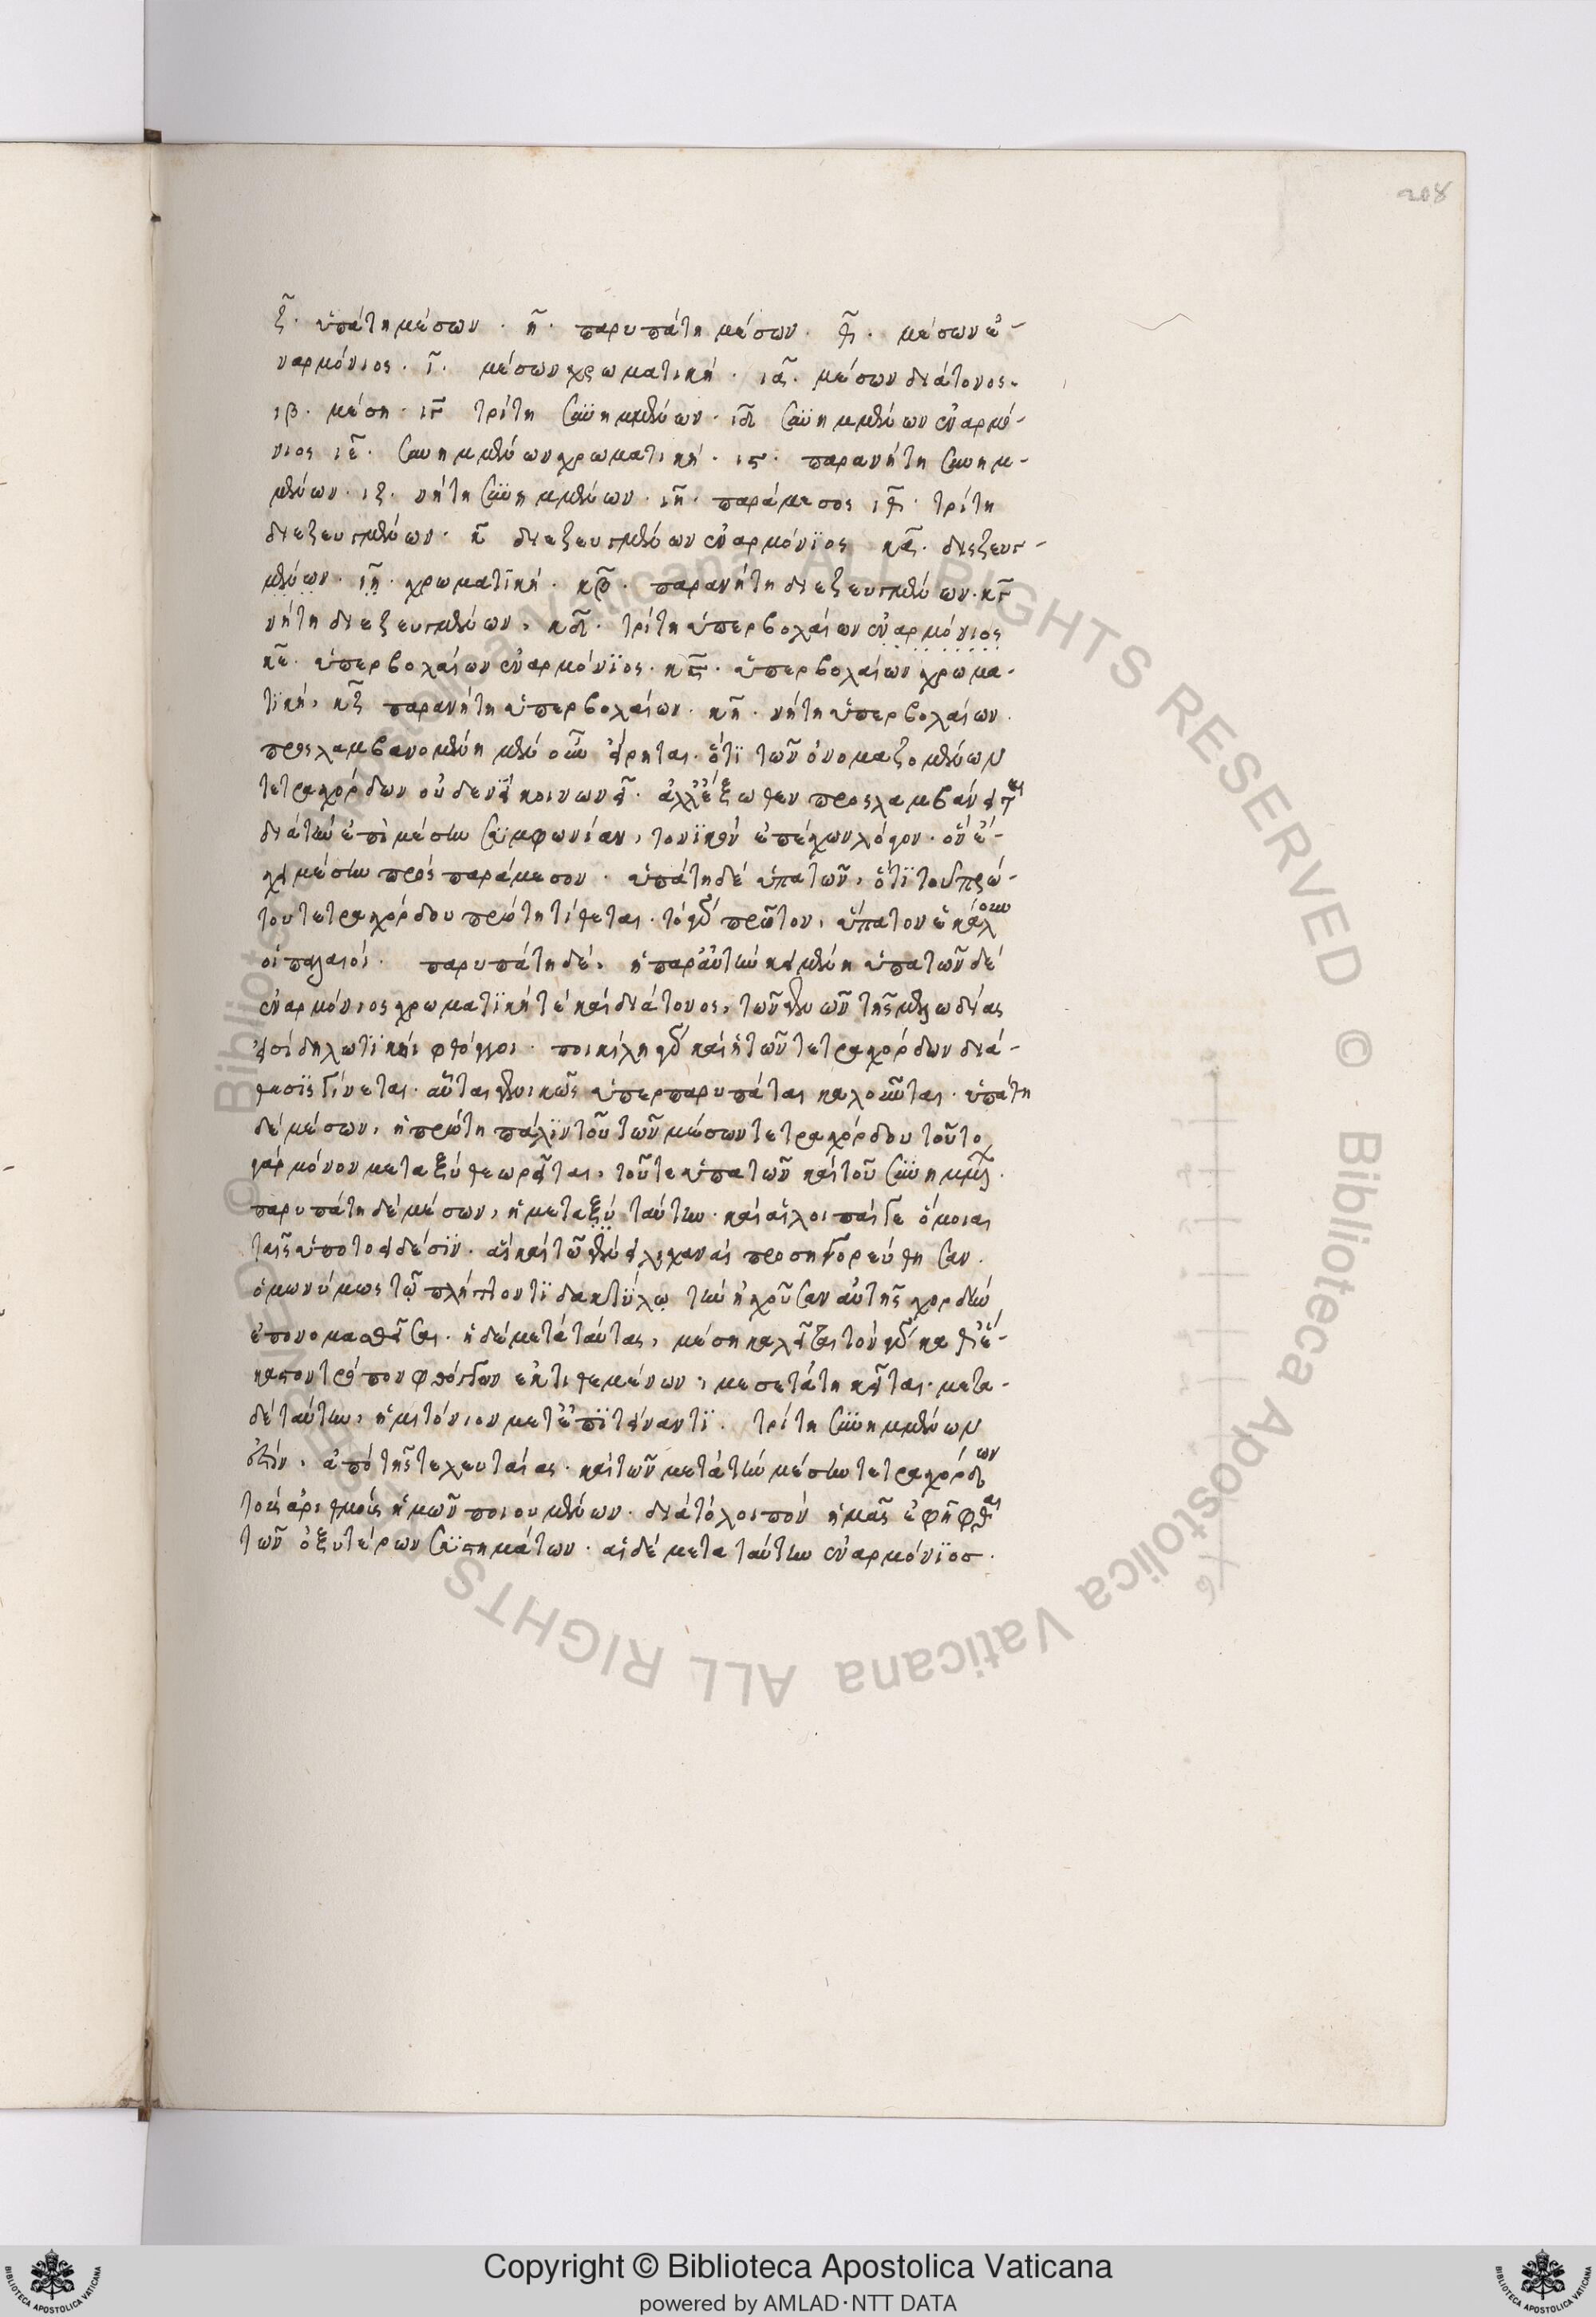 208
ζ. ὑπάτη μέσων. η. παρυπάτη μέσων. θ. μέσων ἐ-
ναρμόνιος. ι. μέσων χρωματικὴ. ια. μέσων διάτονος.
ιβ. μέση. ιγ τρίτη συνημμένων. ιδ συνημμένων ἐναρμό-
νιος ιε. συνημμένων χρωματικὴ. ις. παρανήτη συνημ-
μένων. ιζ. νήτη συνημμένων. ιη. παράμεσος ιθ. τρίτη
διεζευγμένων. κ διεζευγμένων ἐναρμόνϊος κα. διεζευγ-
μένων. ιη. χρωματϊκή. κβ. παρανήτη διεζευγμένων. κγ
νήτη διεζευγμένων, κδ. τρίτη ὑπερβολαίων ἐναρμόνιος
κε. ὑπερβολαίων ἐναρμόνϊος. κς. ὑπερβολαίων χρωμα-
τϊκή, κζ παρανήτη ὑπερβολαίων. κη. νήτη ὑπερβολαίων.
προσλαμβανομένη μὲν οὖν εἴρηται. ὅτϊ τῶν ὀνομαζομένων
τετραχόρδων οὐδενϊ κοινωνεῖ. ἀλλ' ἔξωθεν προσλαμβάνεται
διὰ τὴν ἐπὶ μέσην συμφωνίαν, τονϊκὸν ἐπέχων λόγον. ὃν ἔ-
χει μέση πρὸς παράμεσον. ὑπάτη δὲ ὑπατῶν, ὅτϊ τοῦ πρώ-
του τετραχόρδου πρώτη τίθεται. τὸ γὰρ πρῶτον, ὕπατον ἐκάλουν
οἱ παλαιοί. παρυπάτη δέ, ἡ παρ' αὐτὴν κειμένη ὑπατῶν δὲ
ἐναρμόνιος χρωματϊκή τὲ καὶ διάτονος, τῶν γενῶν τῆς μελωδίας
εἰσὶ δηλωτϊκοὶ φθόγγοι. ποικίλη γὰρ καὶ ἡ τῶν τετραχόρδων διά-
θεσϊς γίνεται. αὗται γενικῶς ὑπερπαρυπάται καλοῦνται. ὑπάτη
δὲ μέσων, ἡ πρώτη πάλϊν τοῦ τῶν μέσων τετραχόρδου τοῦτο
γὰρ μόνον μεταξὺ θεωρεῖται, τοῦ τε ὑπατῶν καὶ τοῦ συνημμένων.
παρυπάτη δὲ μέσων, ἡ μετὰ ταύτην.
ὁμωνύμως τῷ πλήττοντϊ δακτύλῳ τὴν ἠχοῦσαν αὐτῆς χορδὴν
ἐπονομασθεῖσαι. ἡ δὲ μετὰ ταύτας, μέση καλεῖται τὸν γὰρ καθ' ἕ-
καστον τρόπον φθόγγων ἐκτιθεμένων, μεσετάτη κεῖται. μετα-
δὲ ταύτην, τρίτη συνημμένων
ἐστὶν, ἀπὸ τῆς τελευταίας. καὶ τῶν μετὰ τὴν μέσην τετραχόρδων
τοὺς ἀριθμοὺς ἡμῶν ποιουμένων. διὰ τὸ λοιπὸν ἡμᾶς
τῶν ὀξυτέρων συστημάτων. αἱ δὲ μετὰ ταύτην ἐναρμόνϊος.
Copyright © Biblioteca Apostolica Vaticana
powered by AMLAD·NTT DATA